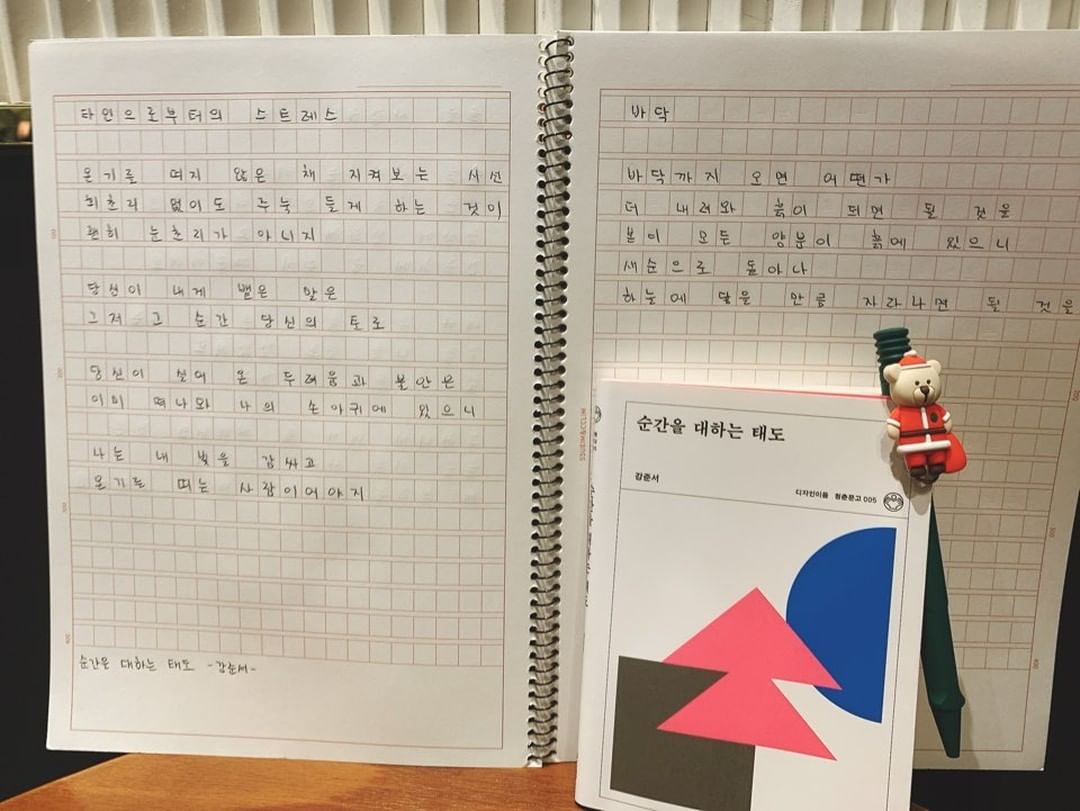 타인으로부터의 스트레스
온기를 띠지 않은 채 지켜보는 시선
회초리 없이도 주눅 들게 하는 것이
괜히 눈초리가 아니지
당신이 내게 뱉은 말은
그저 그 순간 당신의 토로
당신이 실어 온 두려움과 불안은
이미 떠나와 나의 손아귀에 있으니
나는 내 빛을 감싸고
온기를 띠는 사람이어야지
순간을 대하는 태도 -강준서-
바닥
바닥까지 오면 어떤가
더 내려와 흙이 되면 될 것을
본디 모든 양분이 흙에 있으니
새순으로 돋아나
하늘에 닿을 만큼 자라나면 될 것을
순간을 대하는 태도
강준서
디자인이음 청춘문고 005